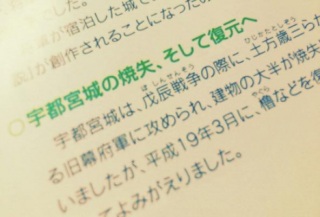 が宿泊した城で
が創作されることになったの
○宇都宮城の焼失、そして復元へ
宇都宮城は、戊辰戦争の際に、土方歳三らが
る旧幕府軍に攻められ、建物の大半が焼失
いましたが、平成19年3月に、櫓などを復
てよみがえりました。